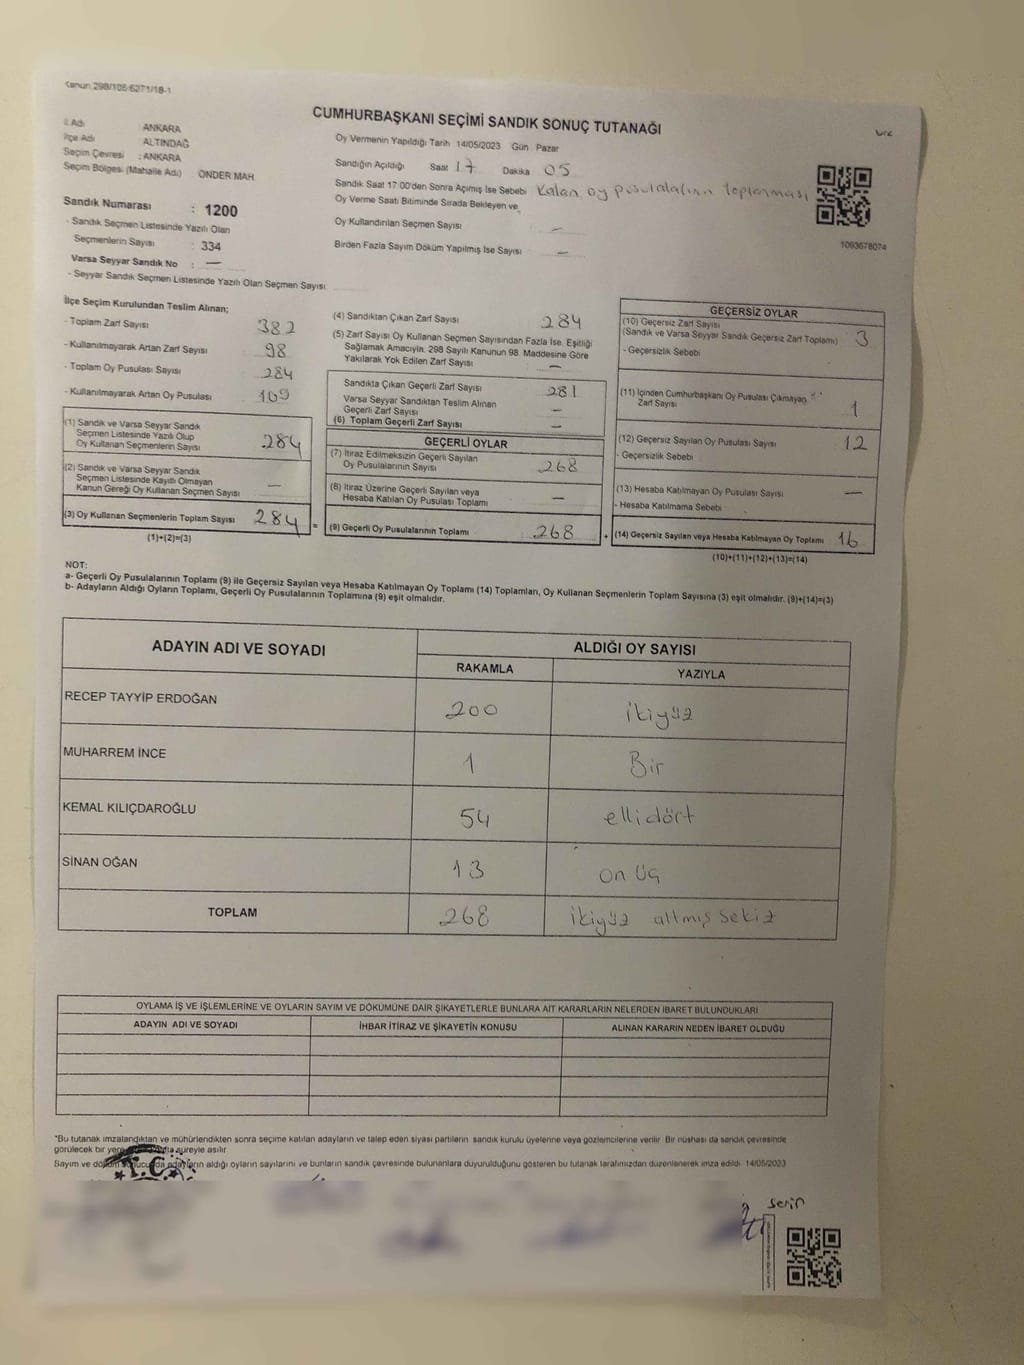 Kanun 298/105:6271/18-1
CUMHURBAŞKANI SEÇİMİ SANDIK SONUÇ TUTANAĞI
İl Adı ANKARA
İlçe Adı ALTINDAĞ
Seçim Çevresi : ANKARA
Seçim Bölgesi (Mahalle Adı) ÖNDER MAH
Sandık Numarası : 1200
- Sandık Seçmen Listesinde Yazılı Olan
Seçmenlerin Sayısı : 334
Varsa Seyyar Sandık No : —
- Seyyar Sandık Seçmen Listesinde Yazılı Olan Seçmen Sayısı
Oy Vermenin Yapıldığı Tarih 14/05/2023 Gün Pazar
Sandığın Açıldığı Saat 17 Dakika 05
Sandık Saat 17:00'den Sonra Açımış İse Sebebi Kalan oy pusulalarının toplanması
Oy Verme Saati Bitiminde Sırada Bekleyen ve
Oy Kullandırılan Seçmen Sayısı : —
Birden Fazla Sayım Döküm Yapılmış İse Sayısı : —
1093678074
İlçe Seçim Kurulundan Teslim Alınan;
- Toplam Zarf Sayısı 382
- Kullanılmayarak Artan Zarf Sayısı 98
- Toplam Oy Pusulası Sayısı 284
- Kullanılmayarak Artan Oy Pusulası
(1) Sandık ve Varsa Seyyar Sandık
Seçmen Listesinde Yazılı Olup
Oy Kullanan Seçmenlerin Sayısı 284
(2) Sandık ve Varsa Seyyar Sandık
Seçmen Listesinde Kayıtlı Olmayan
Kanun Gereği Oy Kullanan Seçmen Sayısı —
(3) Oy Kullanan Seçmenlerin Toplam Sayısı 284 =
(1)+(2)=(3)
(4) Sandıktan Çıkan Zarf Sayısı 284
(5) Zarf Sayısı Oy Kullanan Seçmen Sayısından Fazla İse, Eşitliği
Sağlamak Amacıyla: 298 Sayılı Kanunun 98. Maddesine Göre
Yakılarak Yok Edilen Zarf Sayısı —
Sandıkta Çıkan Geçerli Zarf Sayısı 281
Varsa Seyyar Sandıktan Teslim Alınan
Geçerli Zarf Sayısı —
(6) Toplam Geçerli Zarf Sayısı —
GEÇERLİ OYLAR
(7) İtiraz Edilmeksizin Geçerli Sayılan
Oy Pusulalarının Sayısı 268
(8) İtiraz Üzerine Geçerli Sayılan veya
Hesaba Katılan Oy Pusulası Toplamı —
(9) Geçerli Oy Pusulalarının Toplamı 268 +
GEÇERSİZ OYLAR
(10) Geçersiz Zarf Sayısı
(Sandık ve Varsa Seyyar Sandık Geçersiz Zarf Toplamı) 3
- Geçersizlik Sebebi
(11) İçinden Cumhurbaşkanı Oy Pusulası Çıkmayan
Zarf Sayısı 1
(12) Geçersiz Sayılan Oy Pusulası Sayısı 12
- Geçersizlik Sebebi
(13) Hesaba Katılmayan Oy Pusulası Sayısı —
- Hesaba Katılmama Sebebi
(14) Geçersiz Sayılan veya Hesaba Katılmayan Oy Toplamı 16
(10)+(11)+(12)+(13)=(14)
NOT:
a- Geçerli Oy Pusulalarının Toplamı (9) ile Geçersiz Sayılan veya Hesaba Katılmayan Oy Toplamı (14) Toplamları, Oy Kullanan Seçmenlerin Toplam Sayısına (3) eşit olmalıdır. (9)+(14)=(3)
b- Adayların Aldığı Oyların Toplamı, Geçerli Oy Pusulalarının Toplamına (9) eşit olmalıdır.
ADAYIN ADI VE SOYADI ALDIĞI OY SAYISI
RAKAMLA YAZIYLA
RECEP TAYYİP ERDOĞAN 200 ikiyüz
MUHARREM İNCE 1 Bir
KEMAL KILIÇDAROĞLU 54 ellidört
SİNAN OĞAN 13 on üç
TOPLAM 268 ikiyüz altmış sekiz
OYLAMA İŞ VE İŞLEMLERİNE VE OYLARIN SAYIM VE DÖKÜMÜNE DAİR ŞİKAYETLERLE BUNLARA AİT KARARLARIN NELERDEN İBARET BULUNDUKLARI
ADAYIN ADI VE SOYADI İHBAR İTİRAZ VE ŞİKAYETİN KONUSU ALINAN KARARIN NEDEN İBARET OLDUĞU
*Bu tutanak imzalandıktan ve mühürlendikten sonra seçime katılan adayların ve talep eden siyasi partilerin sandık kurulu üyelerine veya gözlemcilerine verilir. Bir nüshası da sandık çevresinde
görülecek bir yere süreyle asılır.
Sayım ve döküm sonucunda adayların aldığı oyların sayılarını ve bunların sandık çevresinde bulunanlara duyurulduğunu gösteren bu tutanak tarafımızdan düzenlenerek imza edildi. 14/05/2023
T.C.